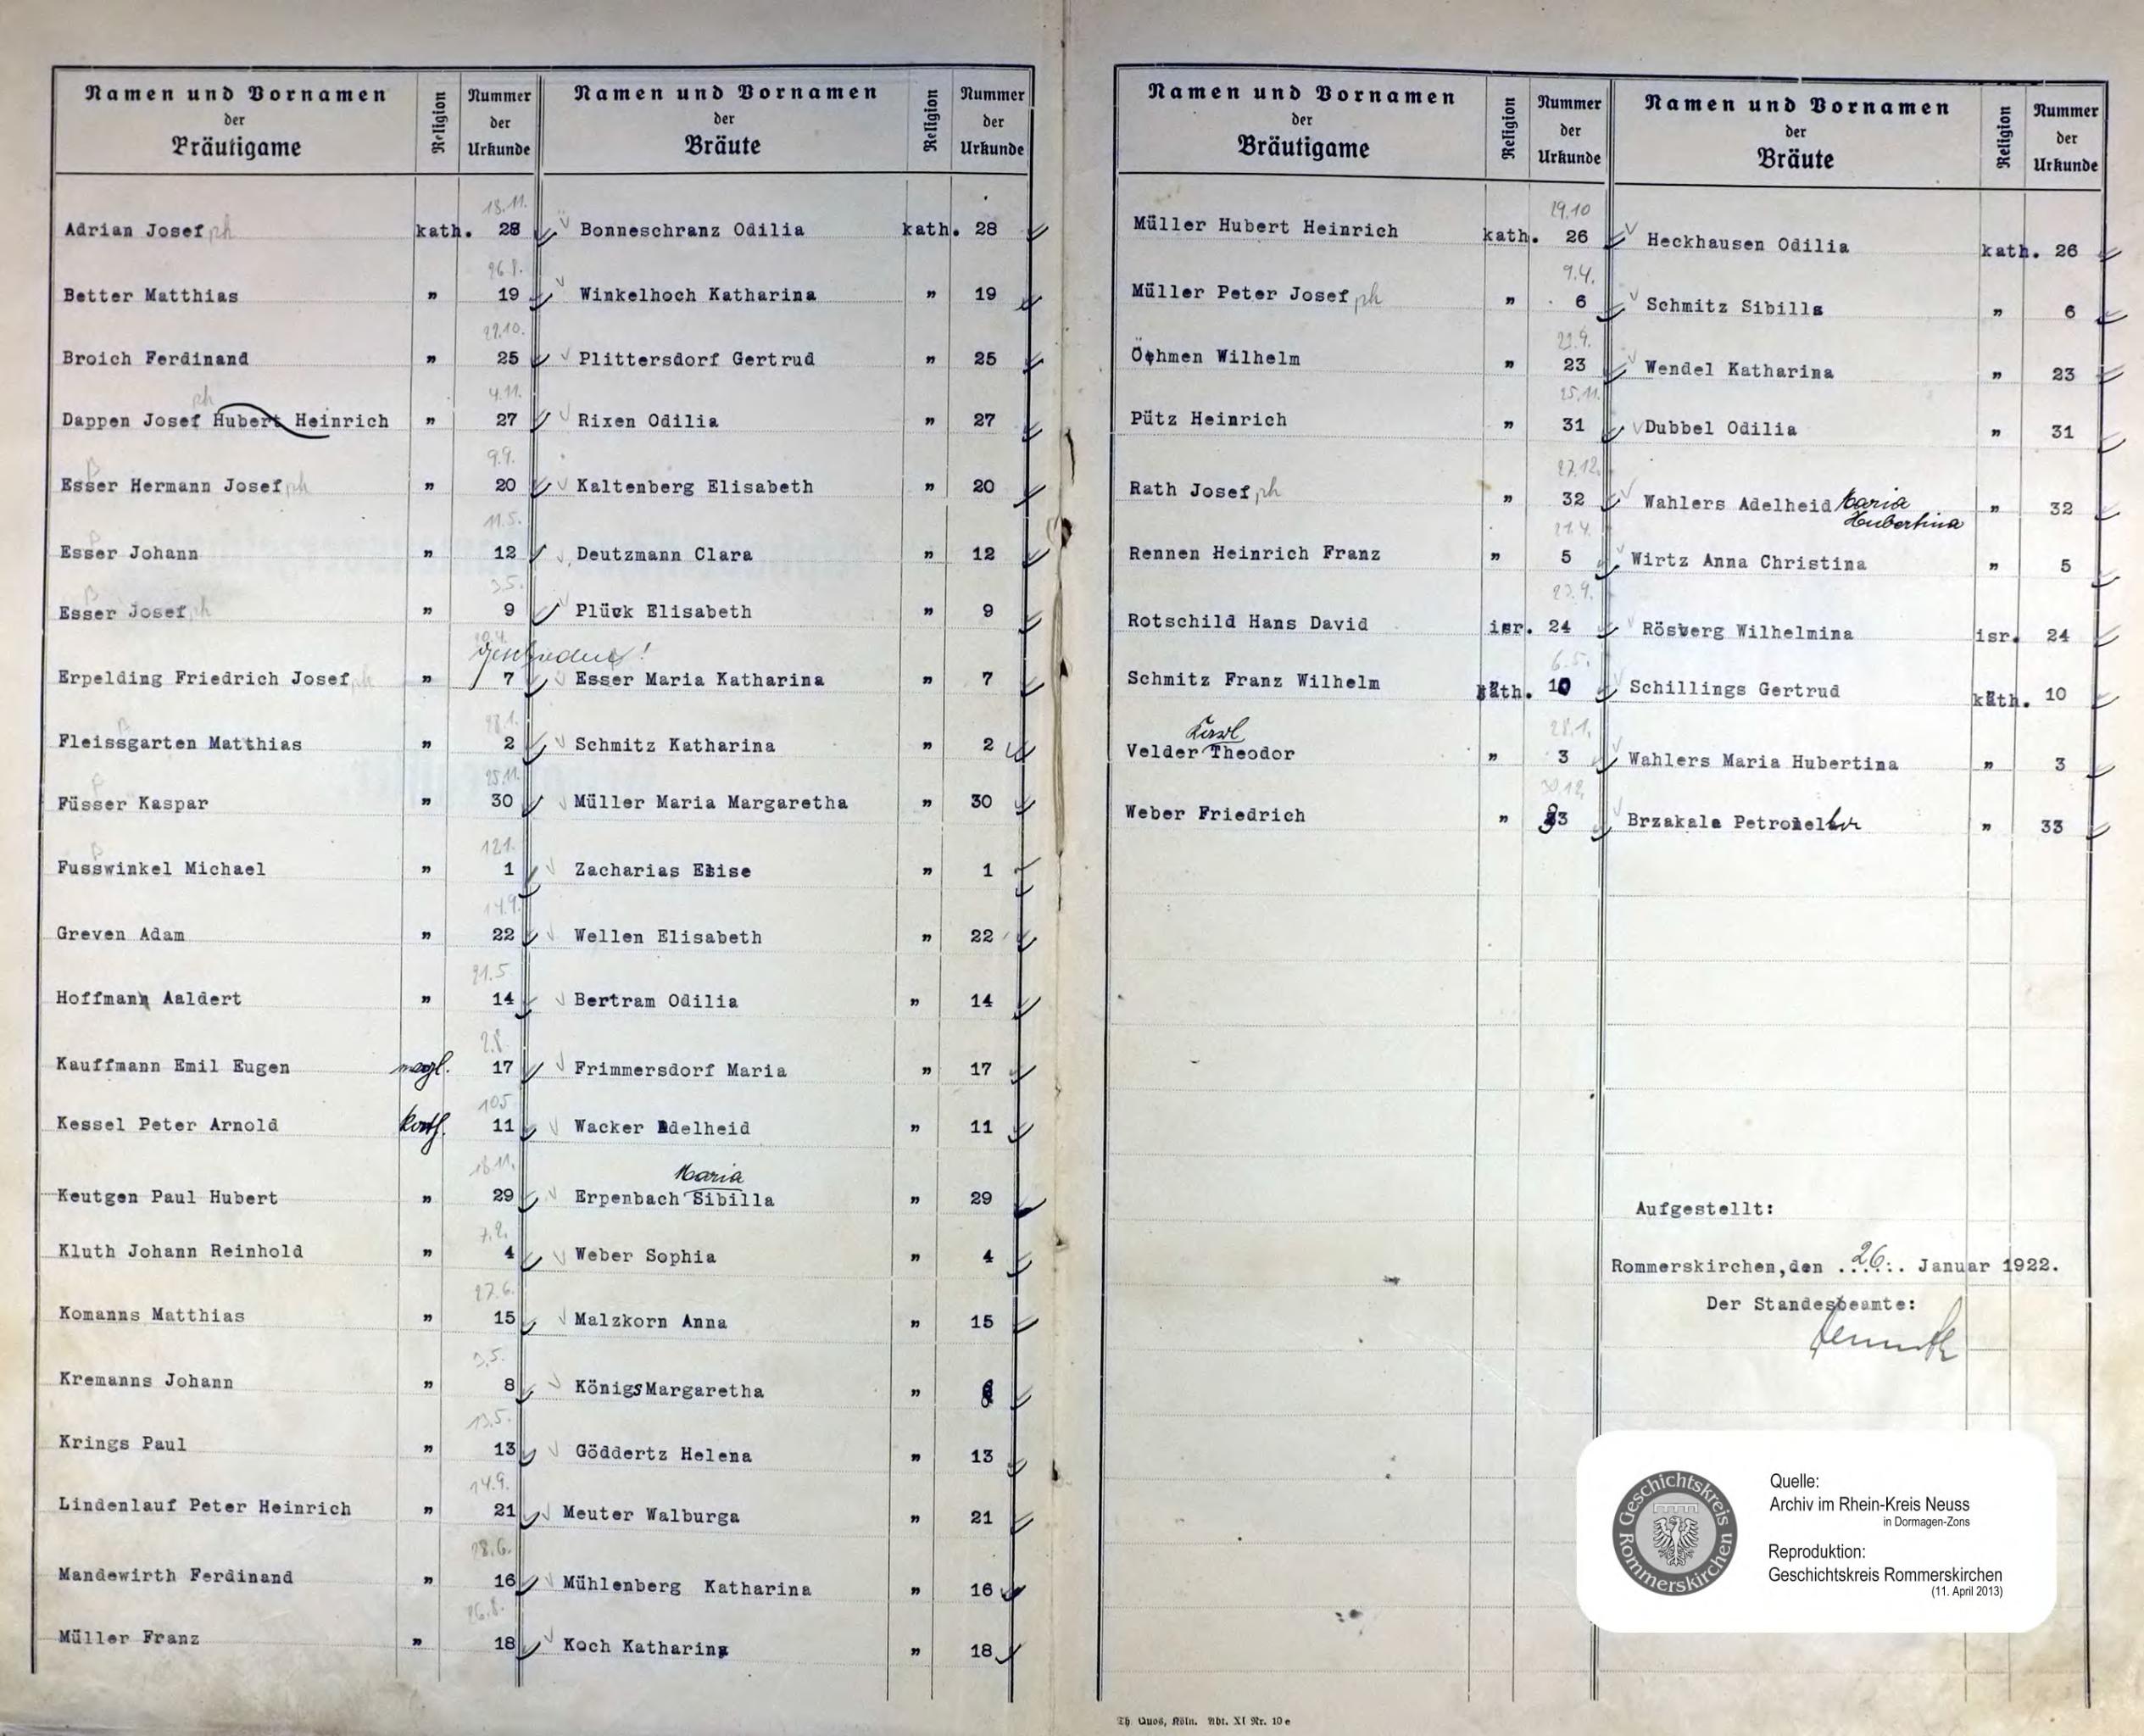 Namen und Vornamen der Bräutigame Religion Nummer der Urkunde Namen und Vornamen der Bräute Religion Nummer der Urkunde
18.11.
Adrian Josef ph kath. 28 Bonneschranz Odilia kath. 28
26.8.
Better Matthias " 19 Winkelhoch Katharina " 19
22.10.
Broich Ferdinand " 25 Plittersdorf Gertrud " 25
ph 4.11.
Dappen Josef Hubert Heinrich " 27 Rixen Odilia " 27
ß 9.9.
Esser Hermann Josef ph " 20 Kaltenberg Elisabeth " 20
ß 11.5.
Esser Johann " 12 Deutzmann Clara " 12
ß 3.5.
Esser Josef ph " 9 Plück Elisabeth " 9
20.4.
geschieden!
Erpelding Friedrich Josef ph " 7 Esser Maria Katharina " 7
ß 28.1.
Fleissgarten Matthias " 2 Schmitz Katharina " 2
ß 25.11.
Füsser Kaspar " 30 Müller Maria Margaretha " 30
ß 12.1.
Fusswinkel Michael " 1 Zacharias Elise " 1
14.9.
Greven Adam " 22 Wellen Elisabeth " 22
21.5
Hoffmann Aaldert " 14 Bertram Odilia " 14
2.8.
Kauffmann Emil Eugen 17 Frimmersdorf Maria " 17
10.5
Kessel Peter Arnold kath. 11 Wacker Adelheid " 11
18.11. Maria
Keutgen Paul Hubert " 29 Erpenbach Sibilla " 29
7.2.
Kluth Johann Reinhold " 4 Weber Sophia " 4
27.6.
Komanns Matthias " 15 Malzkorn Anna " 15
3.5.
Kremanns Johann " 8 Königs Margaretha " 8
13.5.
Krings Paul " 13 Göddertz Helena " 13
14.9.
Lindenlauf Peter Heinrich " 21 Meuter Walburga " 21
28.6.
Mandewirth Ferdinand " 16 Mühlenberg Katharina " 16
26.8.
Müller Franz " 18 Koch Katharina " 18
Namen und Vornamen der Bräutigame Religion Nummer der Urkunde Namen und Vornamen der Bräute Religion Nummer der Urkunde
29.10
Müller Hubert Heinrich kath. 26 Heckhausen Odilia kath. 26
9.4.
Müller Peter Josef ph " 6 Schmitz Sibilla " 6
22.9.
Öhmen Wilhelm " 23 Wendel Katharina " 23
25.11.
Pütz Heinrich " 31 Dubbel Odilia " 31
27.12.
Rath Josef ph " 32 Wahlers Adelheid Maria Hubertina " 32
21.4.
Rennen Heinrich Franz " 5 Wirtz Anna Christina " 5
23.9.
Rotschild Hans David isr. 24 Rösberg Wilhelmina isr. 24
6.5.
Schmitz Franz Wilhelm kath. 10 Schillings Gertrud kath. 10
Karl 28.1.
Velder Theodor " 3 Wahlers Maria Hubertina " 3
30.12.
Weber Friedrich " 33 Brzakala Petronella " 33
Aufgestellt:
Rommerskirchen, den 26. Januar 1922.
Der Standesbeamte:
Geschichtskreis Rommerskirchen
Quelle:
Archiv im Rhein-Kreis Neuss
in Dormagen-Zons
Reproduktion:
Geschichtskreis Rommerskirchen
(11. April 2013)
Th. Quos, Köln. Abt. XI Nr. 10 e